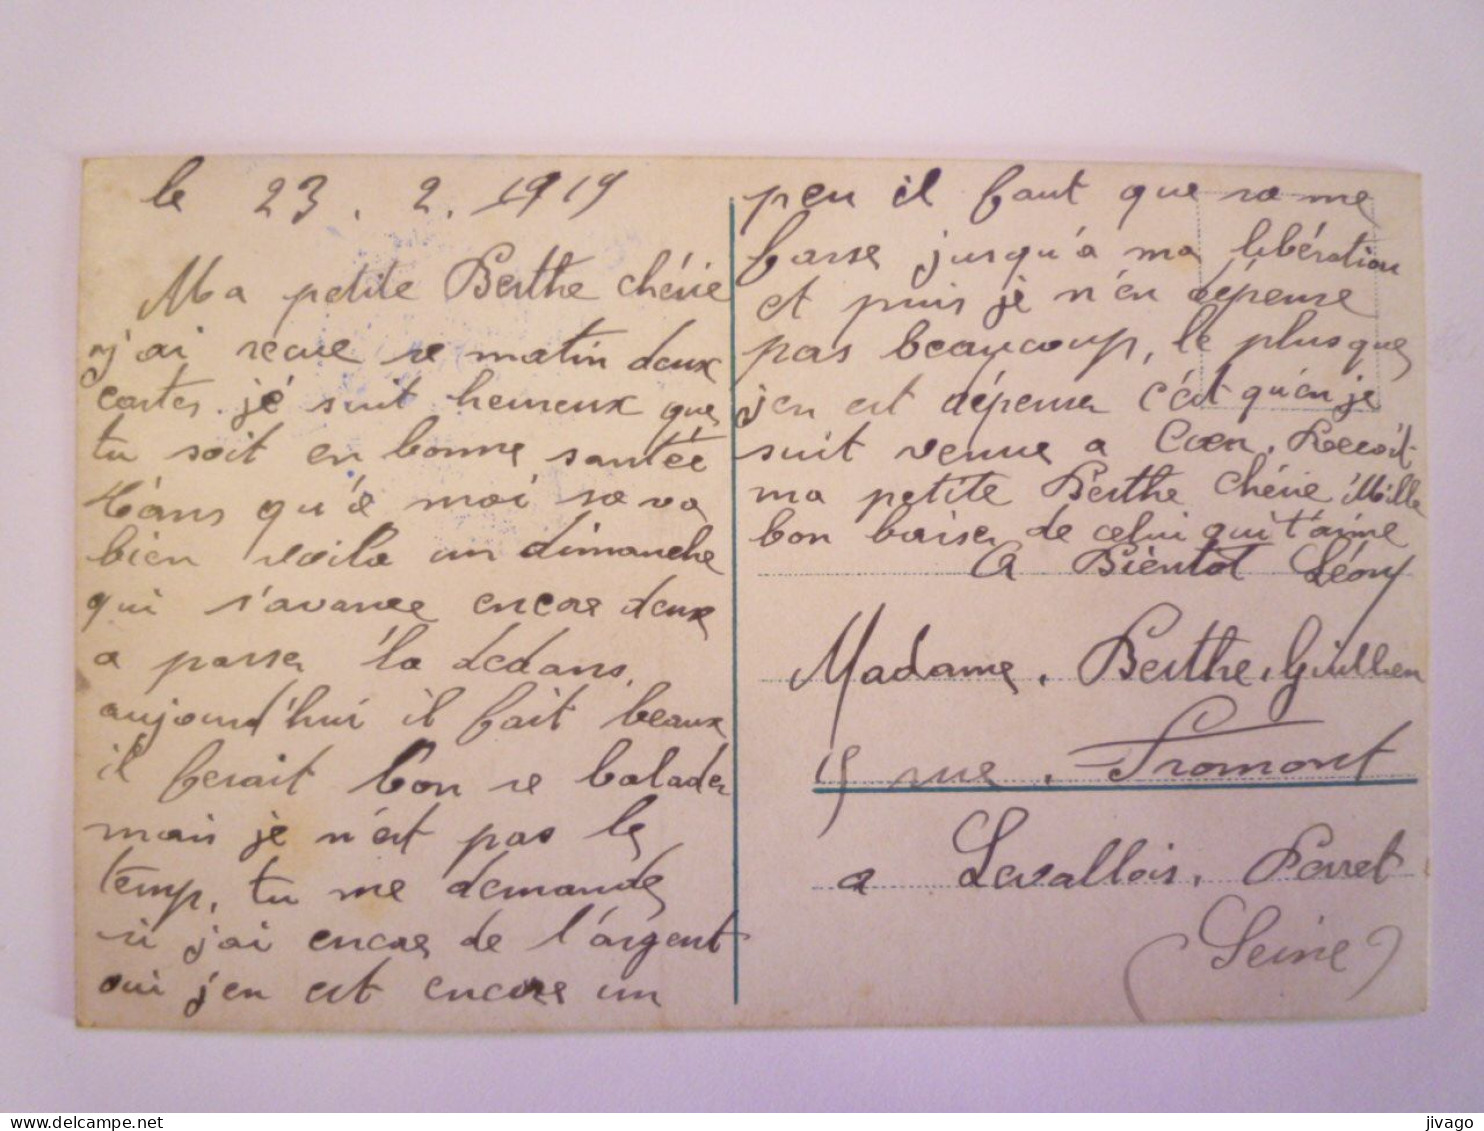 le 23. 2. 1919
Ma petite Berthe chérie
j'ai recue se matin deux
cartes. jé suit heureux que
tu soit en bonne santée
tans qu'a moi sa va
bien voila un dimanche
qui s'avance encore deux
a passer la dedans.
aujourd'hui il fait beaux
il ferait bon se balader
mais je n'est pas le
temp, tu me demande
si j'ai encore de l'argent
oui j'en est encore un
peu il faut que sa me
fasse jusqu'a ma libération
et puis je n'en dépense
pas beaucoup, le plus que
j'en est dépenser c'est qu'en je
suit venue a Caen. Recoit
ma petite Berthe chérie Mille
bon baiser de celui qui t'aime
A Bientot Léon
Madame. Berthe. Guillien
15 rue. Fromont
a Levallois. Perret
(Seine)
delcampe.net
jivago